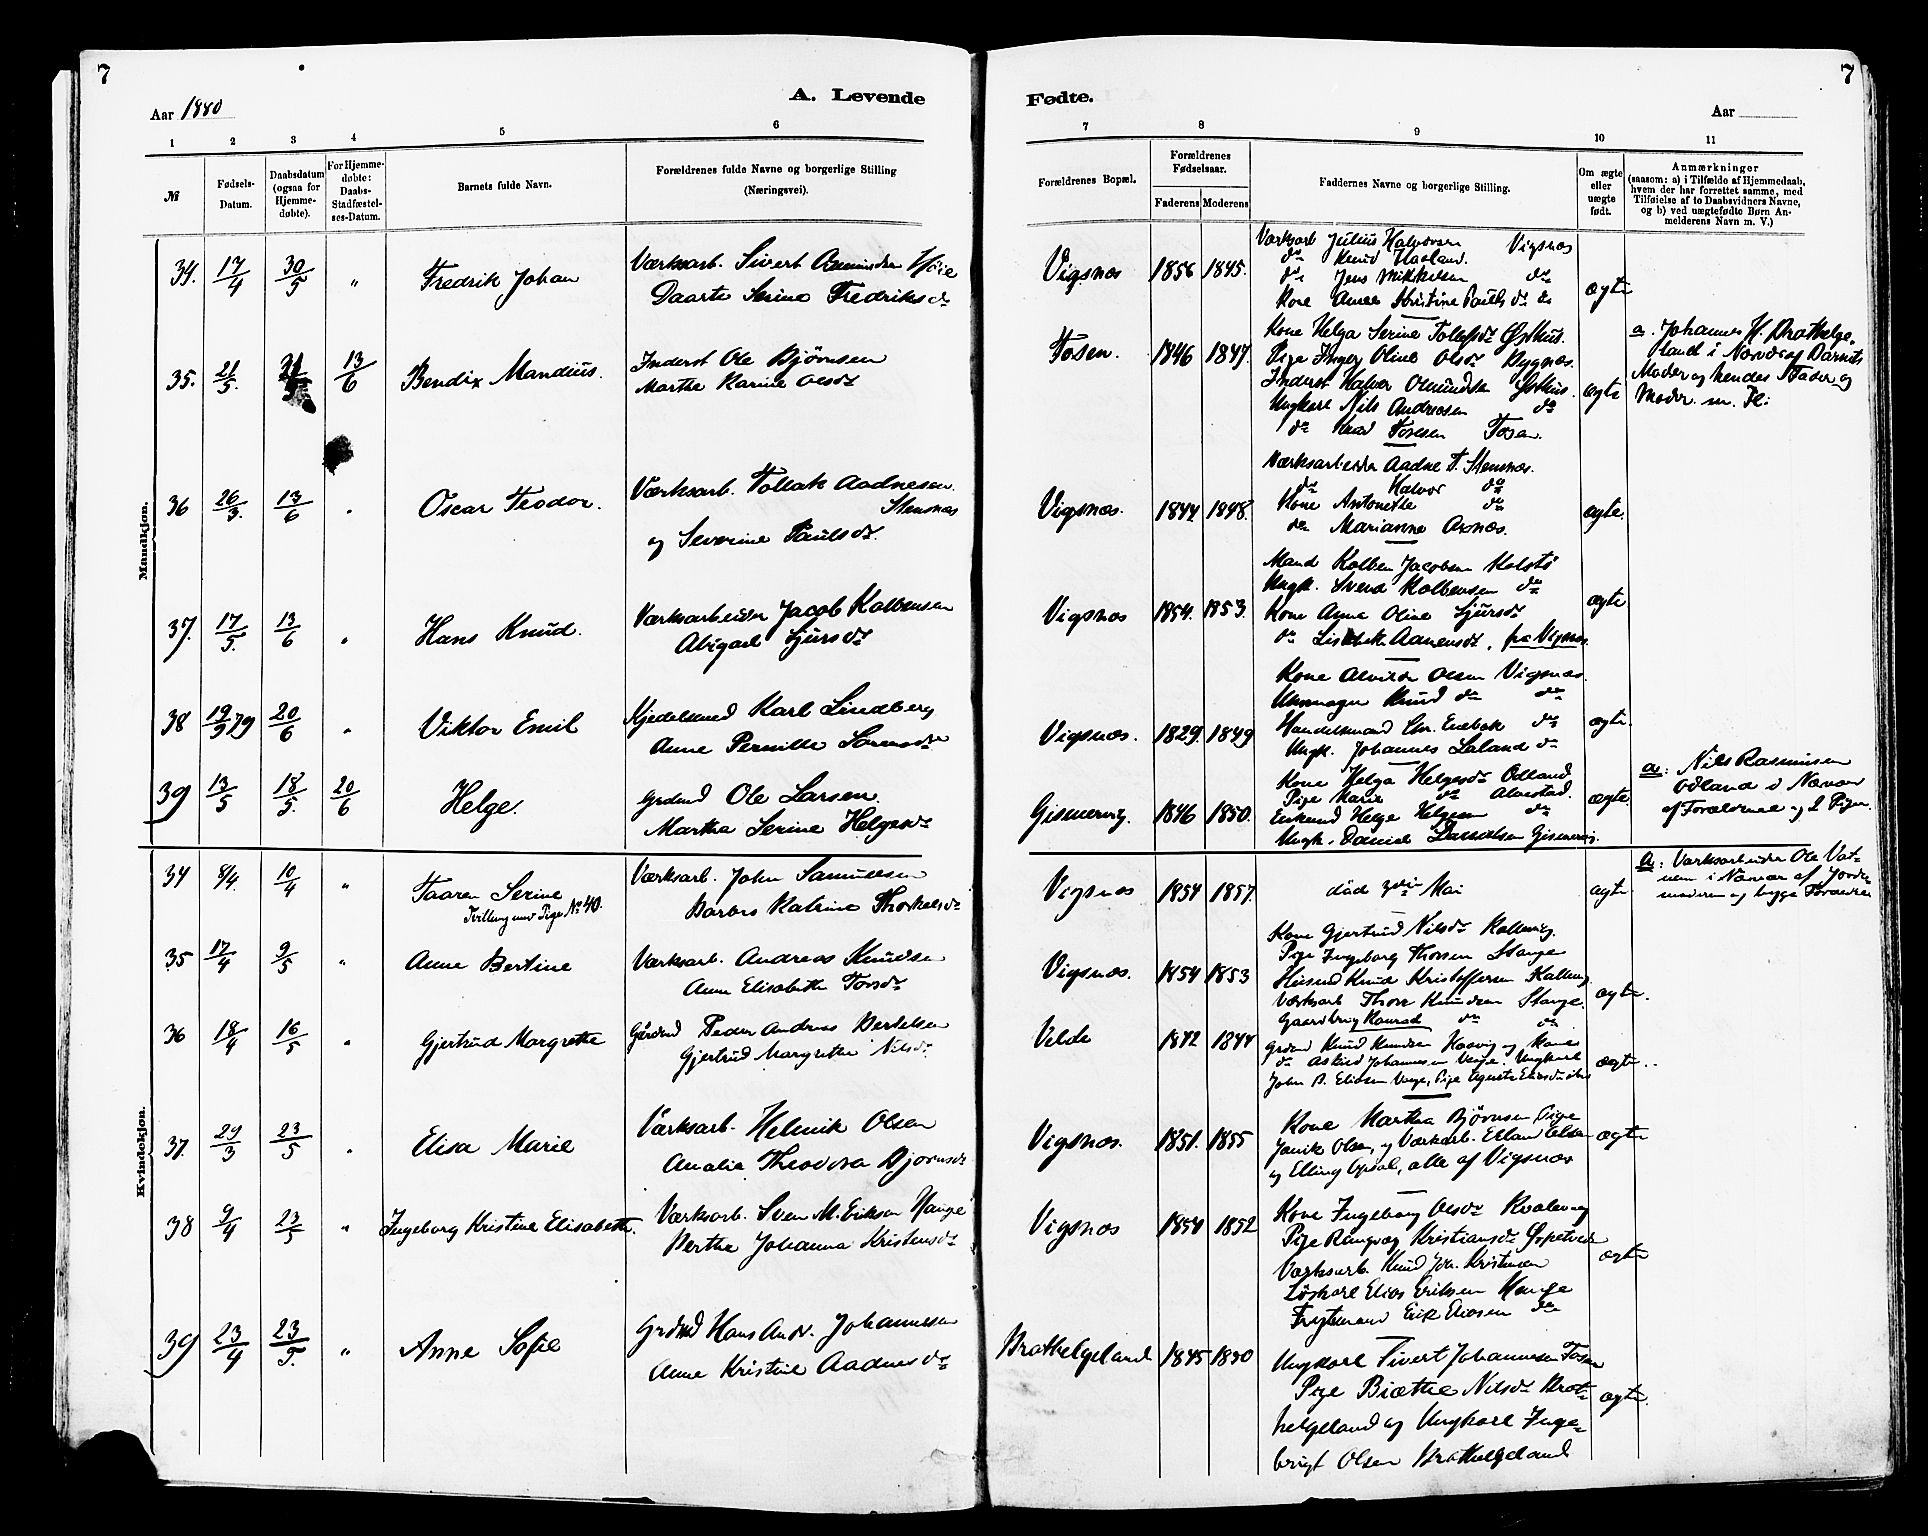 7
7
Aar 1880
A. Levende
Fødte.
Aar
1 2 3 4 5 6 7 8 9 10 11
№
Fødsels-
Datum.
Daabsdatum
(ogsaa for
Hjemme-
døbte).
For Hjemme-
døbte:
Daabs-
Stadfæstel-
ses-Datum.
Barnets fulde Navn.
Forældrenes fulde Navne og borgerlige Stilling
(Næringsvei).
Forældrenes Bopæl.
Forældrenes
Fødselsaar.
Faderens Moderens
Faddernes Navne og borgerlige Stilling.
Om ægte
eller
uægte
født.
Anmærkninger
(saasom: a) i Tilfælde af Hjemmedaab,
hvem der har forrettet samme, med
Tilføielse af to Daabsvidners Navne,
og b) ved uægtefødte Børn An-
melderens Navn m. V.)
Mandkjøn.
34. 17/4 30/5 " Fredrik Johan
Værksarb. Sivert Høie
Daarte Serine Fredriksdr
Vigsnæs 1856 1845.
Værksarb Julius Halvorsen Vigsnæs
do Knud Haaland.
do Jens Mikkelsen do
Kone Anne Kristine Paulsdr do
ægte
35. 21/5. 13/6 Bendix Mandius.
Inderst Ole Bjørnsen
Marthe Karine Olsdr
Fosen. 1846 1847.
Kone Helga Serine Tollefsdr Østhus.
Pige Inger Oline Olsdr Bygnæs.
Inderst Halvor Osmundsen Østhus.
Ungkarl Nils Andreasen do
do Fosen.
ægte
a. Johannes H. Brathelge-
land i Nærvær af Barnets
Moder og hendes Fader og
Moder m. Fl.
36 26/3. 13/6 " Oscar Teodor.
Værksarb. Tollak Aadnesen
Stensnæs
og Severine Paulsdr.
Vigsnæs. 1844 1848.
Værksarbeider Aadne T. Stensnæs.
do Halvor do
Kone Antonette do
do Marianne Axnæs.
ægte.
37. 17/5. 13/6 " Hans Knud.
Værksarbeider Jacob Kolbensen
Abigael Sjursdr
Vigsnæs 1854. 1853.
Mand Kolben Jacobsen Kolstø
Ungk. Svend Kolbensen do
Kone Anne Oline Sjursdr
do Lisebet Aanensdr, fra Vigsnæs.
ægte
38 19/9 79 20/6 " Viktor Emil
Kjedelsmed Karl Lindberg
Anne Pernille Sørensdr
Vigsnæs. 1829. 1849
Kone Alvilde Olsen Vigsnæs.
Uhrmager Knud do do
Handelsmand Chr. Enebak do
Ungk. Johannes Laland do
ægte.
39 13/5 18/5. 20/6 Helge.
Grdmd Ole Larsen
Martha Serine Helgesdr
Gismervig. 1846 1850.
Kone Helga Helgesdr Odland
Pige Marie do Alvestad.
Enkmd Helge Helgesen do
Ungk. Daniel Danielsen Gismervig.
ægte.
a: Nils Rasmussen
Odland i Nærvær
af Forældrene og 2 Piger
Kvindekjøn.
34 8/4. 10/4 " Taaren Serine
Tvilling med Pige No 40.
Værksarb. John Samuelsen
Barbro Katrine Thorkelsdr
Vigsnæs 1854 1857.
død 3die Mai
ægte
a: Værksarbeider Ole Vat-
nem i Nærvær af Jorde-
moderen og begge Forældre
35 17/4 9/5 " Anne Bertine
Værksarb. Andreas Knudsen
Anne Elisabeth Torsdr
Vigsnæs. 1854 1853
Kone Gjertrud Nilsdr Kallevig.
Pige Ingeborg Thorsen Stange
Husmd Knud Kristoffersen Kallevig
Værksarb Thore Knudsen Stange.
Gaardbrug Konrad do do
ægte.
36 18/4 16/5 " Gjertrud Margrethe
Gårdmd Peder Andreas Bertelsen
Gjertrud Margrethe Nilsdr
Velde 1842 1844
Grdmd Knud Knudsen Hasvig og Kone
do Askild Johannesen Veje. Ungkarl
John B. Eliasen Veje, Pige Agnete Eliasdr ibd.
ægte.
37. 29/3 23/5 " Elisa Marie
Værksarb. Helmik Olsen
Amalia Theodora Bjørnsdr
Vigsnæs. 1851. 1855
Kone Martha Bjørnsen, Pige
Janik Olsen, og Værksarb. Erland Olsen
og Elling Opsal, alle af Vigsnæs
ægte
38 9/4 23/5 " Ingeborg Kristine Elisabeth.
Værksarb. Sven M. Eriksen Hauge
Berthe Johanna Kristensdr
Vigsnæs 1854 1852
Kone Ingeborg Olsdr Kvalevag
Pige Rangvag Kristiansdr
Værksarb. Knud Joh. Kristensen
Løskarl Elias Eriksen Hauge
Erik Eliasen do
ægte
39 23/4 23/5. " Anne Sofie
Grdmd Hans Andr. Johannesen
Anne Kristine Aadnesdr
Brathelgeland 1845 1840
Ungkarl Sivert Johannesen Fosen
Pige Birthe Nilsdr Brat-
helgeland og Ungkarl Inge-
brigt Olsen Brathelgeland
ægte.